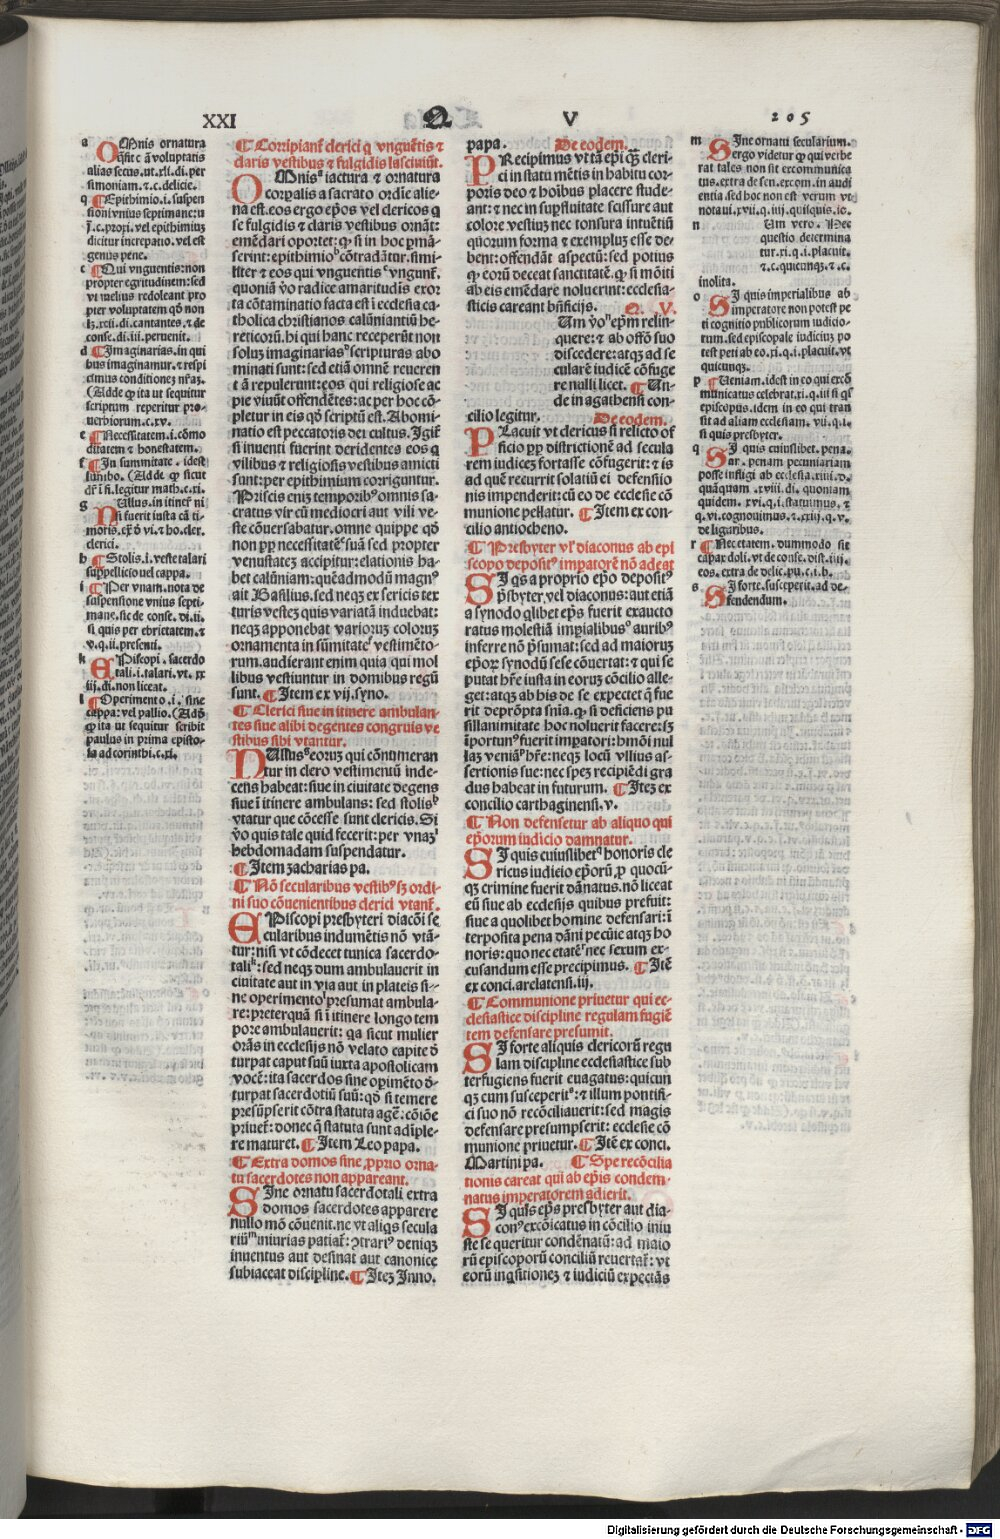 XXI Q V 205
a OMnis ornatura
q̄sit: c̄ ā voluptatis
alias secus. ut. xli. di. per
simoniam. ⁊. c. delicie.
Epithimio. i. suspen
sionē vnius septimane: u
dicitur increpatio. vel est
genus pene.
c ¶ Qui vnguentis: non
propter egritudinem: sed
vt melius redoleant pro
pter voluptatem qd̄ non
lꝫ. xcii. di. cantantes. ⁊ de
conse. di. iii. peruenit.
d ¶ Imaginarias. in qui
bus imaginamur. ⁊ respi
cimus conditionez nr̄aꝫ.
(Adde ꝙ ita ut sequitur
scriptum reperitur pro-
uerbiorum. c. xv.
e ¶ Necessitatem. i. cōmo
ditatem ⁊ honestatem.
f ¶ In summitate. idest
limbo. (Adde ꝙ sicut
dr̄ ī fi. legitur math. c. xi.
g NUllus. in itinere ni
si fuerit iusta cā ti-
moris. ex̄ ō vi. ⁊ ho. cler.
clerici.
h ¶ Stolis. i. veste talari
suppellicio uel cappa.
i ¶ Per vnam. nota de
suspensione vnius septi
mane. sic de conse. di. ii.
si quis per ebrietatem. ⁊
v. q. ii. presenti.
k EPiscopi. sacerdo
tali. i. talari. vt. xx
iij. di. non liceat.
l ¶ Operimento. i. sine
cappa: vel pallio. (Add̄
ꝙ ita ut sequitur scribit
paulus in prima episto-
la ad corinthi. c. xi.
¶ Corripiant̄ clerici q vnguētis ⁊
claris vestibus ⁊ fulgidis lasciuiūt.
OMnis iactura ⁊ ornatura
corpalis a sacrato ordīe alie-
na est. eos ergo ep̄os vel clericos q
se fulgidis ⁊ claris vestibus ornāt:
emēdari oportet: ꝙ si in hoc pmā-
serint: epithimio cōtradāt̄ur. simi-
liter ⁊ eos qui vnguentis vngunt̄.
quoniā ṽo radice amaritudis exor
ta cōtaminatio facta est ī ecclesia ca-
tholica christianos calūniantiū he-
reticorū. hi qui hanc receperūt non
soluꝫ imaginarias scripturas abo
minati sunt: sed etiā omnē reueren
tiā repulerunt: eos qui religiose ac
pie viuūt offendētes: ac per hoc cō-
pletur in eis qd̄ scriptū est. Abomi
natio est peccatoris dei cultus. Igit̄
si inuenti fuerint deridentes eos q
vilibus ⁊ religiosis vestibus amicti
sunt: per epithimium corriguntur.
Priscis eniꝫ temporibꝰ omnis sa-
cratus vir cū mediocri aut vili ve-
ste cōuersabatur. omne quippe qd̄
non ꝓp necessitatē suā sed propter
venustateꝫ accipitur: elationis ha-
bet calūniam: quēadmodū magnꝰ
ait Basilius. sed neqꝫ ex sericis tex
turis vesteꝫ quis variatā induebat:
neqꝫ apponebat variorum colorum
ornamenta in sūmitate vestimēto-
rum. audierant enim quia qui mol
libus vestiuntur in domibus regū
sunt. ¶ Item ex vij. syno.
¶ Clerici siue in itinere ambulan-
tes siue alibi degentes congruis ve
stibus sibi vtantur.
NUllus eoruꝫ qui cōnumeran
tur in clero vestimentū inde-
cens habeat: siue in ciuitate degens
siue ī itinere ambulans: sed stolis
vtatur que cōcesse sunt clericis. Si
ṽo quis tale quid fecerit: per vnaꝫ
hebdomadam suspendatur.
¶ Item zacharias pa.
¶ Nō secularibus vestibꝰ sꝫ ordi
ni suo cōuenientibus clerici vtant̄.
EPiscopi presbyteri diacōi se
cularibus indumētis nō vtā-
tur: nisi vt cōdecet tunica sacerdo-
tali: sed neqꝫ dum ambulauerit in
ciuitate aut in via aut in plateis si-
ne operimento presumat ambula-
re: preterquā si ī itinere longo tem
pore ambulauerit: qa sicut mulier
orās in ecclesijs nō velato capite d̄
turpat caput suū iuxta apostolicam
vocē: ita sacerdos sine opimēto d̄-
turpat sacerdotiū suū: qd̄ si temere
presūpserit cōtra statuta agē: cōiōe
priuet̄: donec q̄ statuta sunt adīple-
re maturet. ¶ Item Leo papa.
¶ Extra domos sine ꝓprio orna-
tu sacerdotes non appareant.
SIne ornatu sacerdotali extra
domos sacerdotes apparere
nullo mō cōuenit. ne vt aliqs secula
riū iniurias patiat̄: ꝯtrariꝰ deniqꝫ
inuentus aut desinat aut canonice
subiaceat discipline. ¶ Iteꝫ Inno.
papa. De eodem.
PRecipimus vt tā ep̄i qꝫ cleri-
ci in statu mētis in habitu cor-
poris deo ⁊ hoībus placere stude-
ant: ⁊ nec in supfluitate scissure aut
colore vestiuꝫ nec tonsura intuētiū
quorum forma ⁊ exempluꝫ esse de-
bent: offendāt aspectū: sed potius
ꝙ eorū deceat sanctitatē. ꝙ si mōiti
ab eis emēdare noluerint: ecclesia-
sticis careant bn̄ficijs. Q. V.
Um ṽo ep̄m relin-
quere: ⁊ ab offō suo
discedere: atqꝫ ad se
culare iudicē cōfuge
re nulli licet. ¶ Un-
de in agathensi con-
cilio legitur. De eodem.
PLacuit vt clericus si relicto of
ficio ꝓp districtionē ad secula
rem iudiceꝫ fortasse cōfugerit: ⁊ is
ad quē recurrit solatiū ei defensio
nis impenderit: cū eo de ecclesie cō
munione pellatur. ¶ Item ex con-
cilio antiocheno.
¶ Presbyter vl̓ diaconus ab epi
scopo depositꝰ imperatorē nō adeat
SI qs a proprio ep̄o depositꝰ
p̄sbyter. vel diaconus: aut etiā
a synodo qlibet ep̄s fuerit exaucto
ratus molestiā imp̄ialibus auribꝰ
inferre nō p̄sumat: sed ad maiorus
ep̄orꝫ synodū sese cōuertat: ⁊ qui se
putat hr̄e iusta in eorus cōcilio alle-
get: atqꝫ ab his de se expectet q̄ fue
rit depromta sn̄ia. ꝙ si deficiens pu
sillanimitate hoc noluerit facere: sꝫ
īportunꝰ fuerit impatori: hmōi nul
laꝫ veniā hr̄e: neqꝫ locū vllius as-
sertionis sue: nec speꝫ recipiēdi gra
dus habeat in futurum. ¶ Iteꝫ ex
concilio carthaginensi. v.
¶ Non defensetur ab aliquo qui
ep̄orum iudicio damnatur.
SI quis cuiuslibet honoris cle
ricus iudicio ep̄orū ꝓ quocū-
qꝫ crimine fuerit dānatus. nō liceat
eū siue ab ecclesijs quibus prefuit:
siue a quolibet homine defensari: ī
terposita pena dāni pecūie atqꝫ ho
noris: quo nec etatē nec sexum ex-
cusandum esse precipimus. ¶ Itē
ex conci. arelatensi. iij.
¶ Communione priuetur qui ec-
clesiastice discipline regulam fugiē
tem defensare presumit.
SI forte aliquis clericorū regu
lam discipline ecclesiastice sub
terfugiens fuerit euagatus: quicun
qꝫ cum susceperit: ⁊ illum pontifi-
ci suo nō recōciliauerit: sed magis
defensare presumpserit: ecclesie cō
munione priuetur. ¶ Itē ex conci.
Martini pa. ¶ Spe recōcilia
tionis careat qui ab ep̄is condem-
natus imperatorem adierit.
SI quis ep̄s presbyter aut dia-
conꝰ excōicatus in cōcilio iniu
ste se queritur condēnatū: ad maio
rū episcoporū conciliū reuertat̄: vt
eorū inqsitionez ⁊ iudiciū expectās
m SIne ornatu secularium.
ergo videtur ꝙ qui verbe
rat tales non sit excommunica
tus. extra de sen. excom. in audi
entia sed hoc non est verum vt
nota ui. xvii. q. iiij. quisquis. ic.
n Um vero. Nec
questio determina
tur. xi. q. i. placuit.
⁊. c. quicunqꝫ. ⁊. c.
inolita.
o SI quis imperialibus ab
imperatore non potest pe
ti cognitio publicorum iudicio-
rum. sed episcopale iudicium po
test peti ab eo. xi. q. i. placuit. vt
quicunqꝫ.
p ¶ Ueniam. idest in eo qui excō
municatus celebrat. xi. q. iii si qs
episcopus. idem in eo qui tran
sit ad aliam ecclesiam. vii. q. i.
si quis presbyter.
q SI quis cuiuslibet. pena.
Nar. penam pecuniariam
posse infligi ab ecclesia. xiiii. d.
quāquam. xviii. di. quoniam
quidem. xvi. q. i. statuimus. ⁊
q. vi. cognouimus. ⁊. xxiij. q. v.
de ligaribus.
r ¶ Nec etatem. dummodo sit
capax doli. vt de conse. dist. iiij.
eos. extra de delic. pu. c. i. h.
s SI forte. susceperit. ad de-
fendendum.
Digitalisierung gefördert durch die Deutsche Forschungsgemeinschaft - DFG